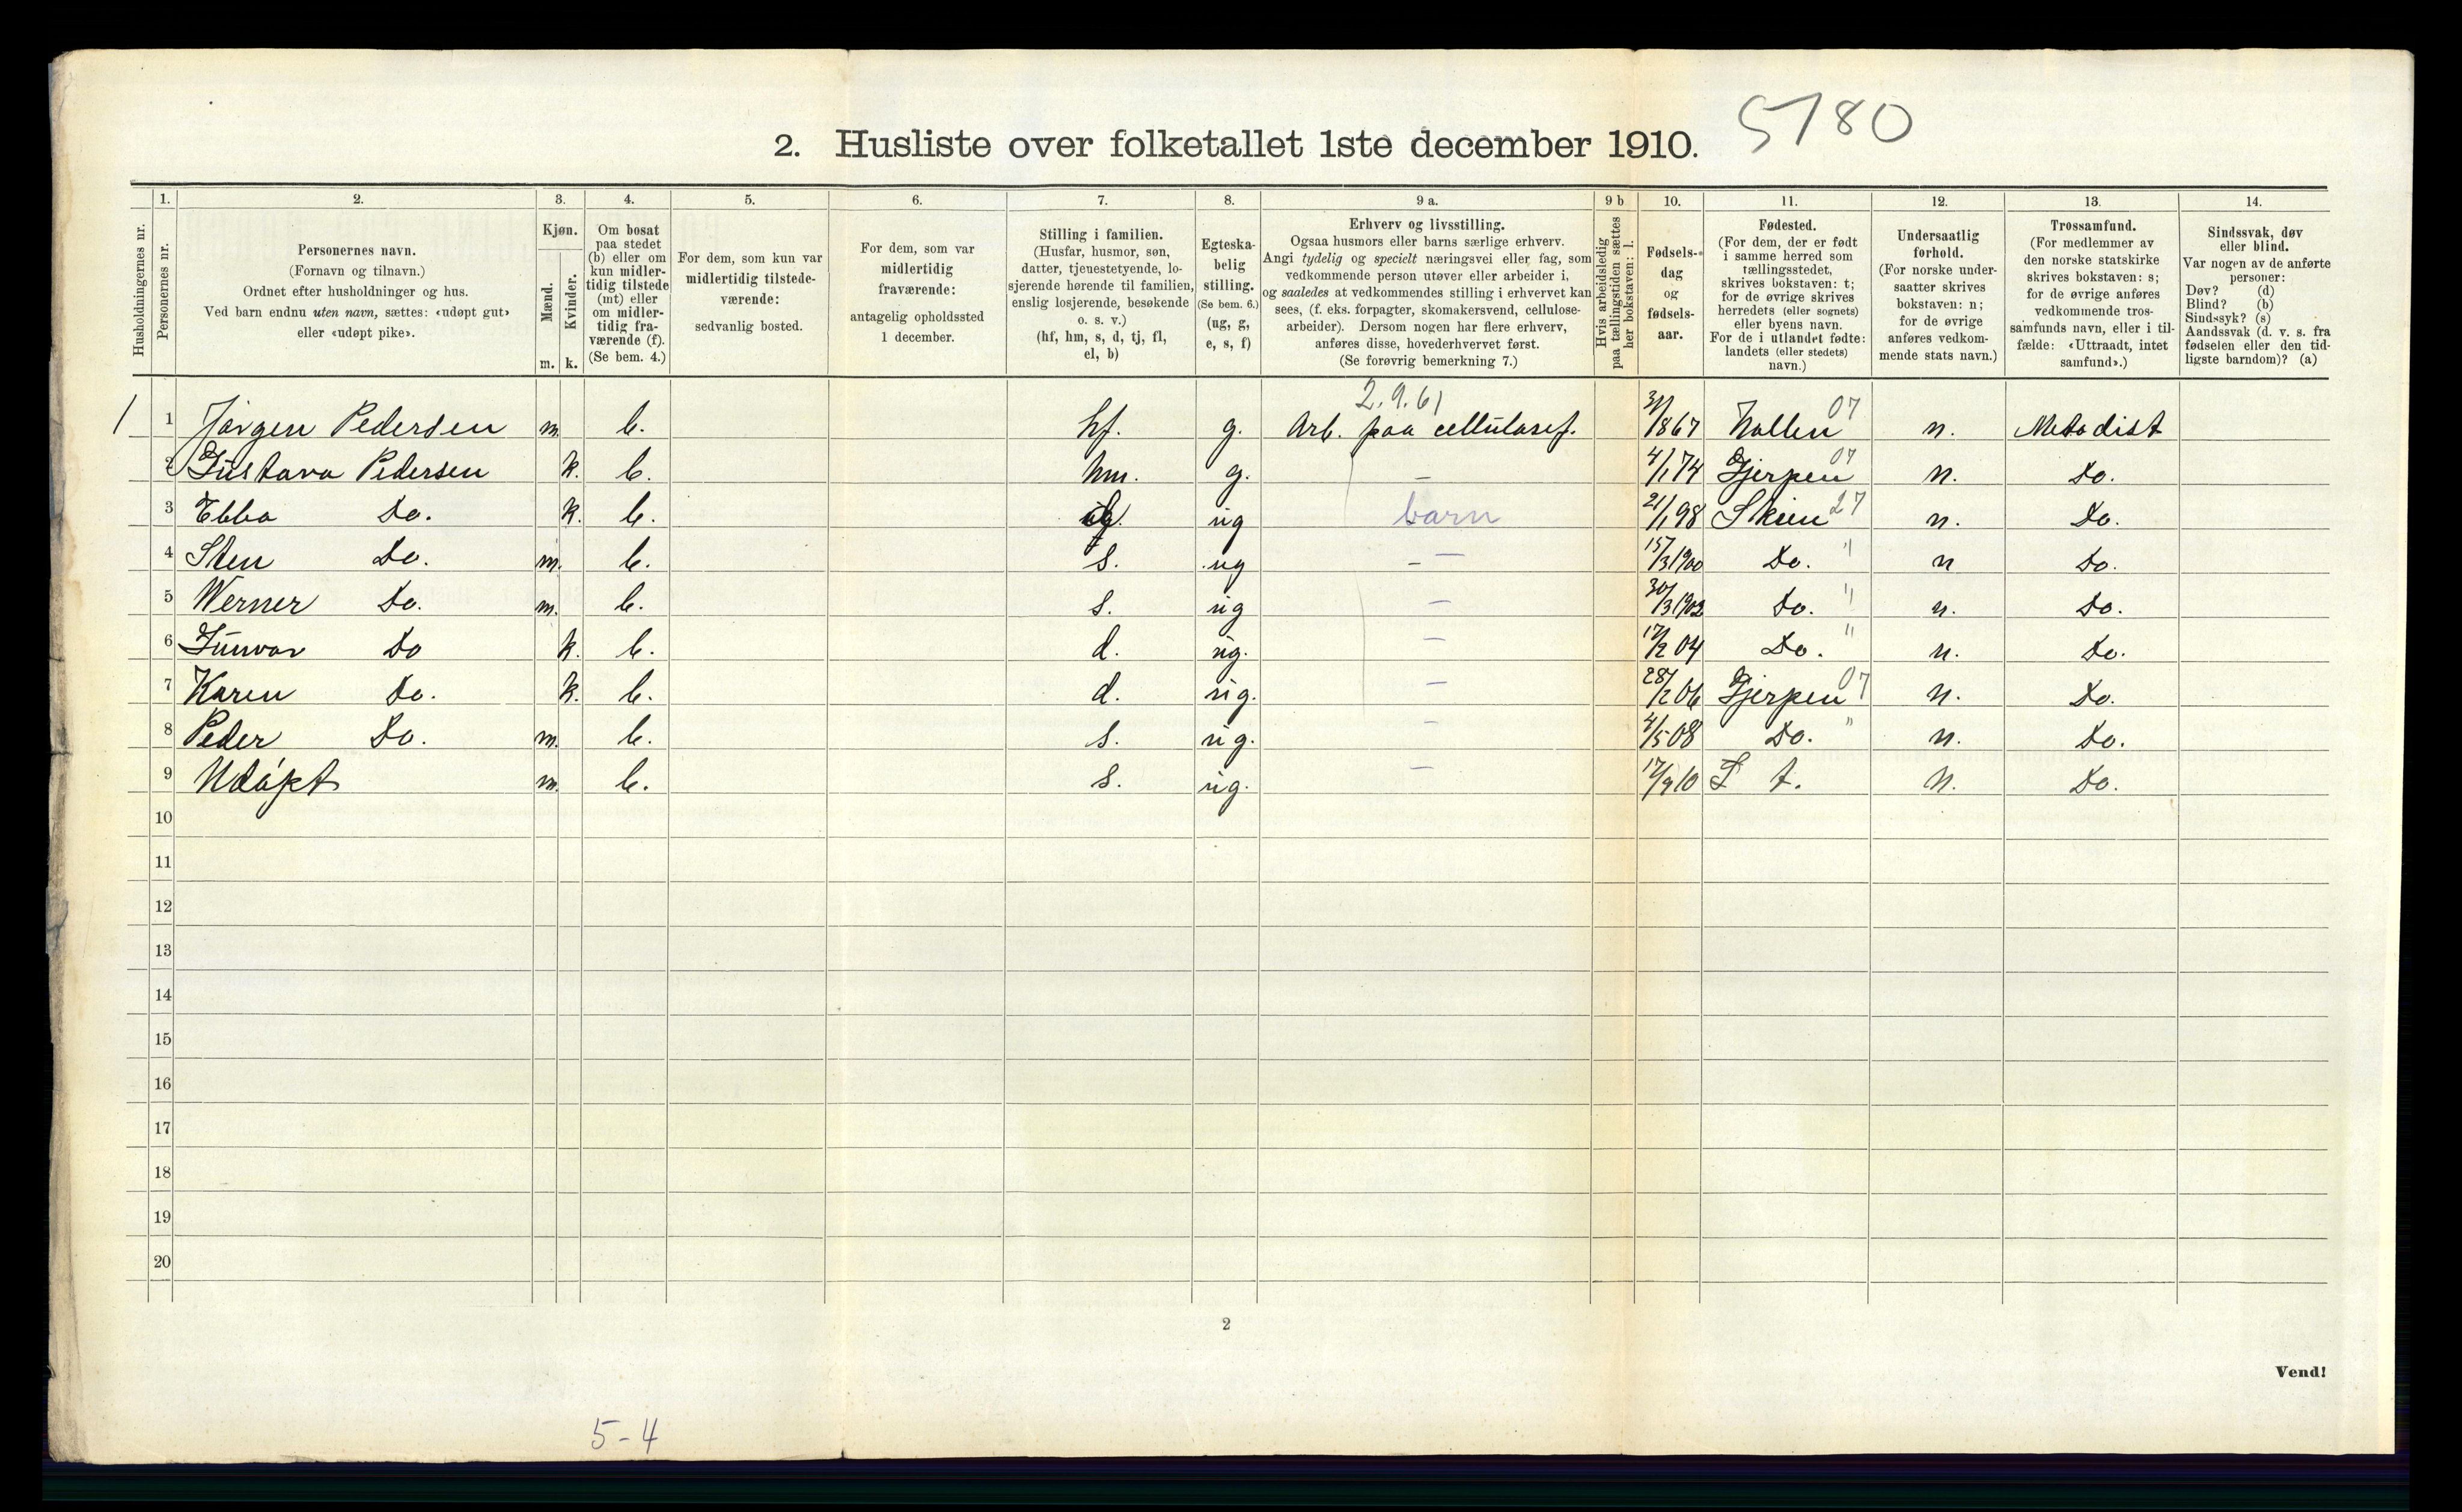 5180
2. Husliste over folketallet 1ste december 1910.
Husholdningernes nr.
1. Personernes nr.
2. Personernes navn.
(Fornavn og tilnavn.)
Ordnet efter husholdninger og hus.
Ved barn endnu uten navn, sættes: «udøpt gut»
eller «udøpt pike».
3. Kjøn.
Mænd. m.
Kvinder. k.
4. Om bosat
paa stedet
(b) eller om
kun midler-
tidig tilstede
(mt) eller
om midler-
tidig fra-
værende (f).
(Se bem. 4.)
5. For dem, som kun var
midlertidig tilstede-
værende:
sedvanlig bosted.
6. For dem, som var
midlertidig
fraværende:
antagelig opholdssted
1 december.
7. Stilling i familien.
(Husfar, husmor, søn,
datter, tjenestetyende, lo-
sjerende hørende til familien,
enslig losjerende, besøkende
o. s. v.)
(hf, hm, s, d, tj, fl,
el, b)
8. Egteska-
belig
stilling.
(Se bem. 6.)
(ug, g,
e, s, f)
9 a. Erhverv og livsstilling.
Ogsaa husmors eller barns særlige erhverv.
Angi tydelig og specielt næringsvei eller fag, som
vedkommende person utøver eller arbeider i,
og saaledes at vedkommendes stilling i erhvervet kan
sees, (f. eks. forpagter, skomakersvend, cellulose-
arbeider). Dersom nogen har flere erhverv,
anføres disse, hovederhvervet først.
(Se forøvrig bemerkning 7.)
9 b Hvis arbeidsledig
paa tællingstiden sættes
her bokstaven: l.
10. Fødsels-
dag
og
fødsels-
aar.
11. Fødested.
(For dem, der er født
i samme herred som
tællingsstedet,
skrives bokstaven: t;
for de øvrige skrives
herredets (eller sognets)
eller byens navn.
For de i utlandet fødte:
landets (eller stedets)
navn.)
12. Undersaatlig
forhold.
(For norske under-
saatter skrives
bokstaven: n;
for de øvrige
anføres vedkom-
mende stats navn.)
13. Trossamfund.
(For medlemmer av
den norske statskirke
skrives bokstaven: s;
for de øvrige anføres
vedkommende tros-
samfunds navn, eller i til-
fælde: «Uttraadt, intet
samfund».)
14. Sindssvak, døv
eller blind.
Var nogen av de anførte
personer:
Døv? (d)
Blind? (b)
Sindssyk? (s)
Aandssvak (d. v. s. fra
fødselen eller den tid-
ligste barndom)? (a)
2.9.61
1 1 Jørgen Pedersen m. b. hf. g. Arb. paa cellulosef. 867 07 n. Metodist
2 Gustava Pedersen k. b. hm. g. - 4/1 74 Gjerpen 07 n. Do.
3 Ebba Do. k. b. d. ug barn 21/1 98 Skien 27 n. Do.
4 Sten Do. m. b. s. ug - 15/3 1900 Do. " n Do.
5 Werner Do. m. b. s. ug - 30/3 1902 Do. " n. Do.
6 Gunvor Do k. b. d. ug. - 17/2 04 Do. " n. Do.
7 Karen Do. k. b. d. ug. - 28/2 06 Gjerpen 07 n. Do.
8 Peder Do. m. b. s. ug. - 4/5 08 Do. " n. Do.
9 Udøpt m. b. s. ug. - 17/9 10 t. n. Do.
10
11
12
13
14
15
16
17
18
19
20
2
Vend!
5-4